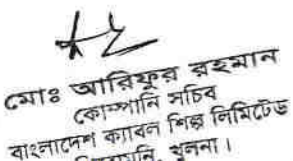 মোঃ আরিফুর রহমান
কোম্পানি সচিব
বাংলাদেশ ক্যাবল শিল্প লিমিটেড
খুলনা।